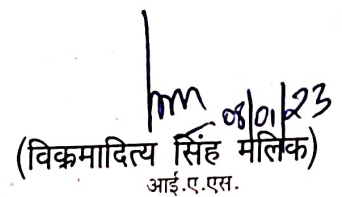 08/01/23
(विक्रमादित्य सिंह मलिक)
आई.ए.एस.